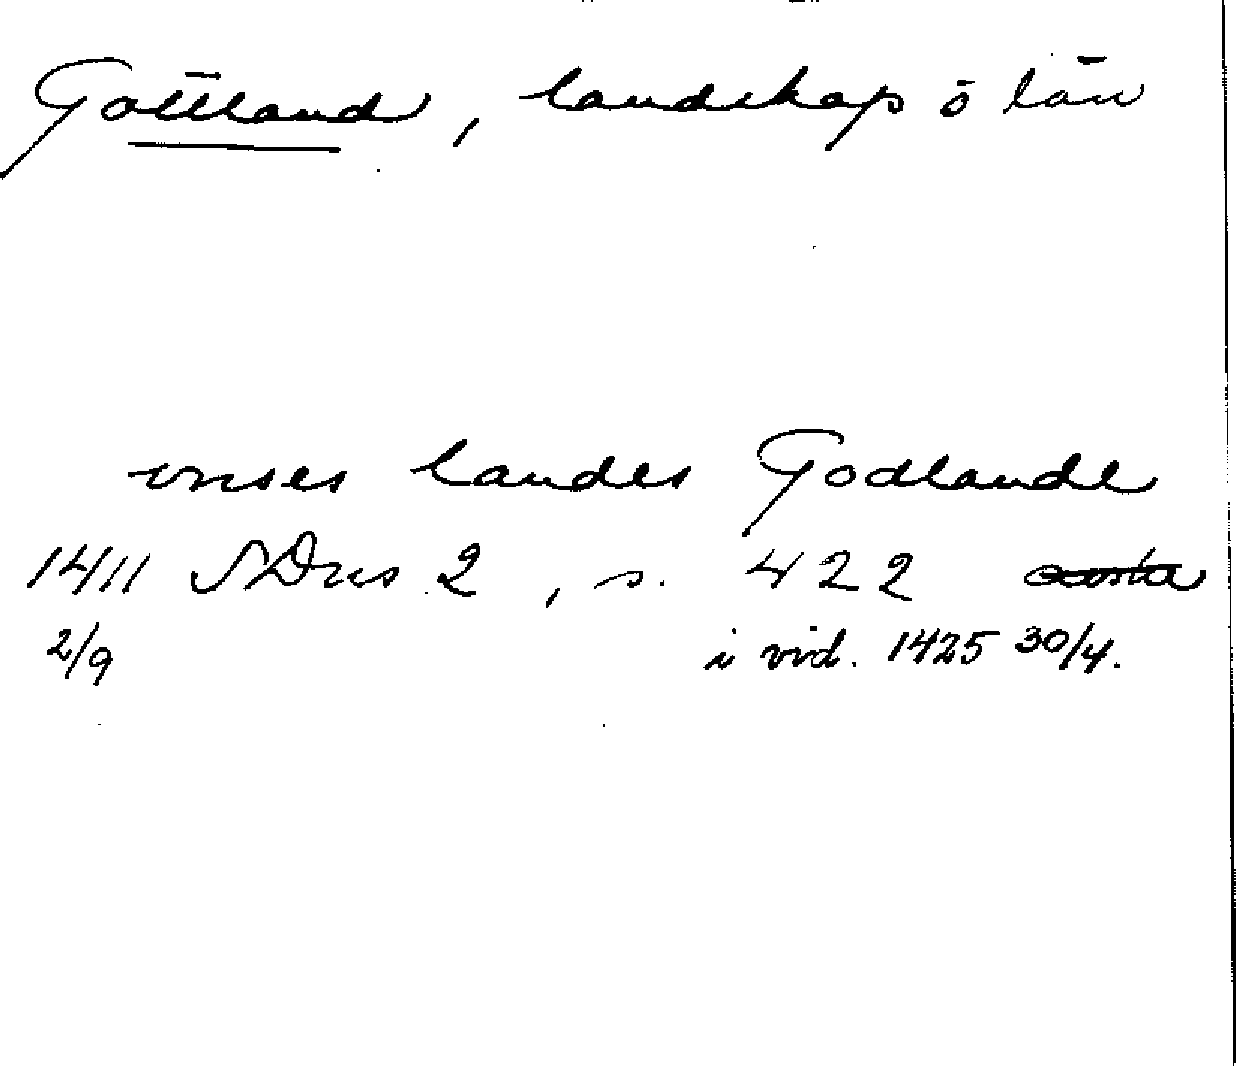 Gottland, landskap o län
unses landes Godlande
1411 SDns 2, s. 422
2/9 i vid. 1425 30/4.